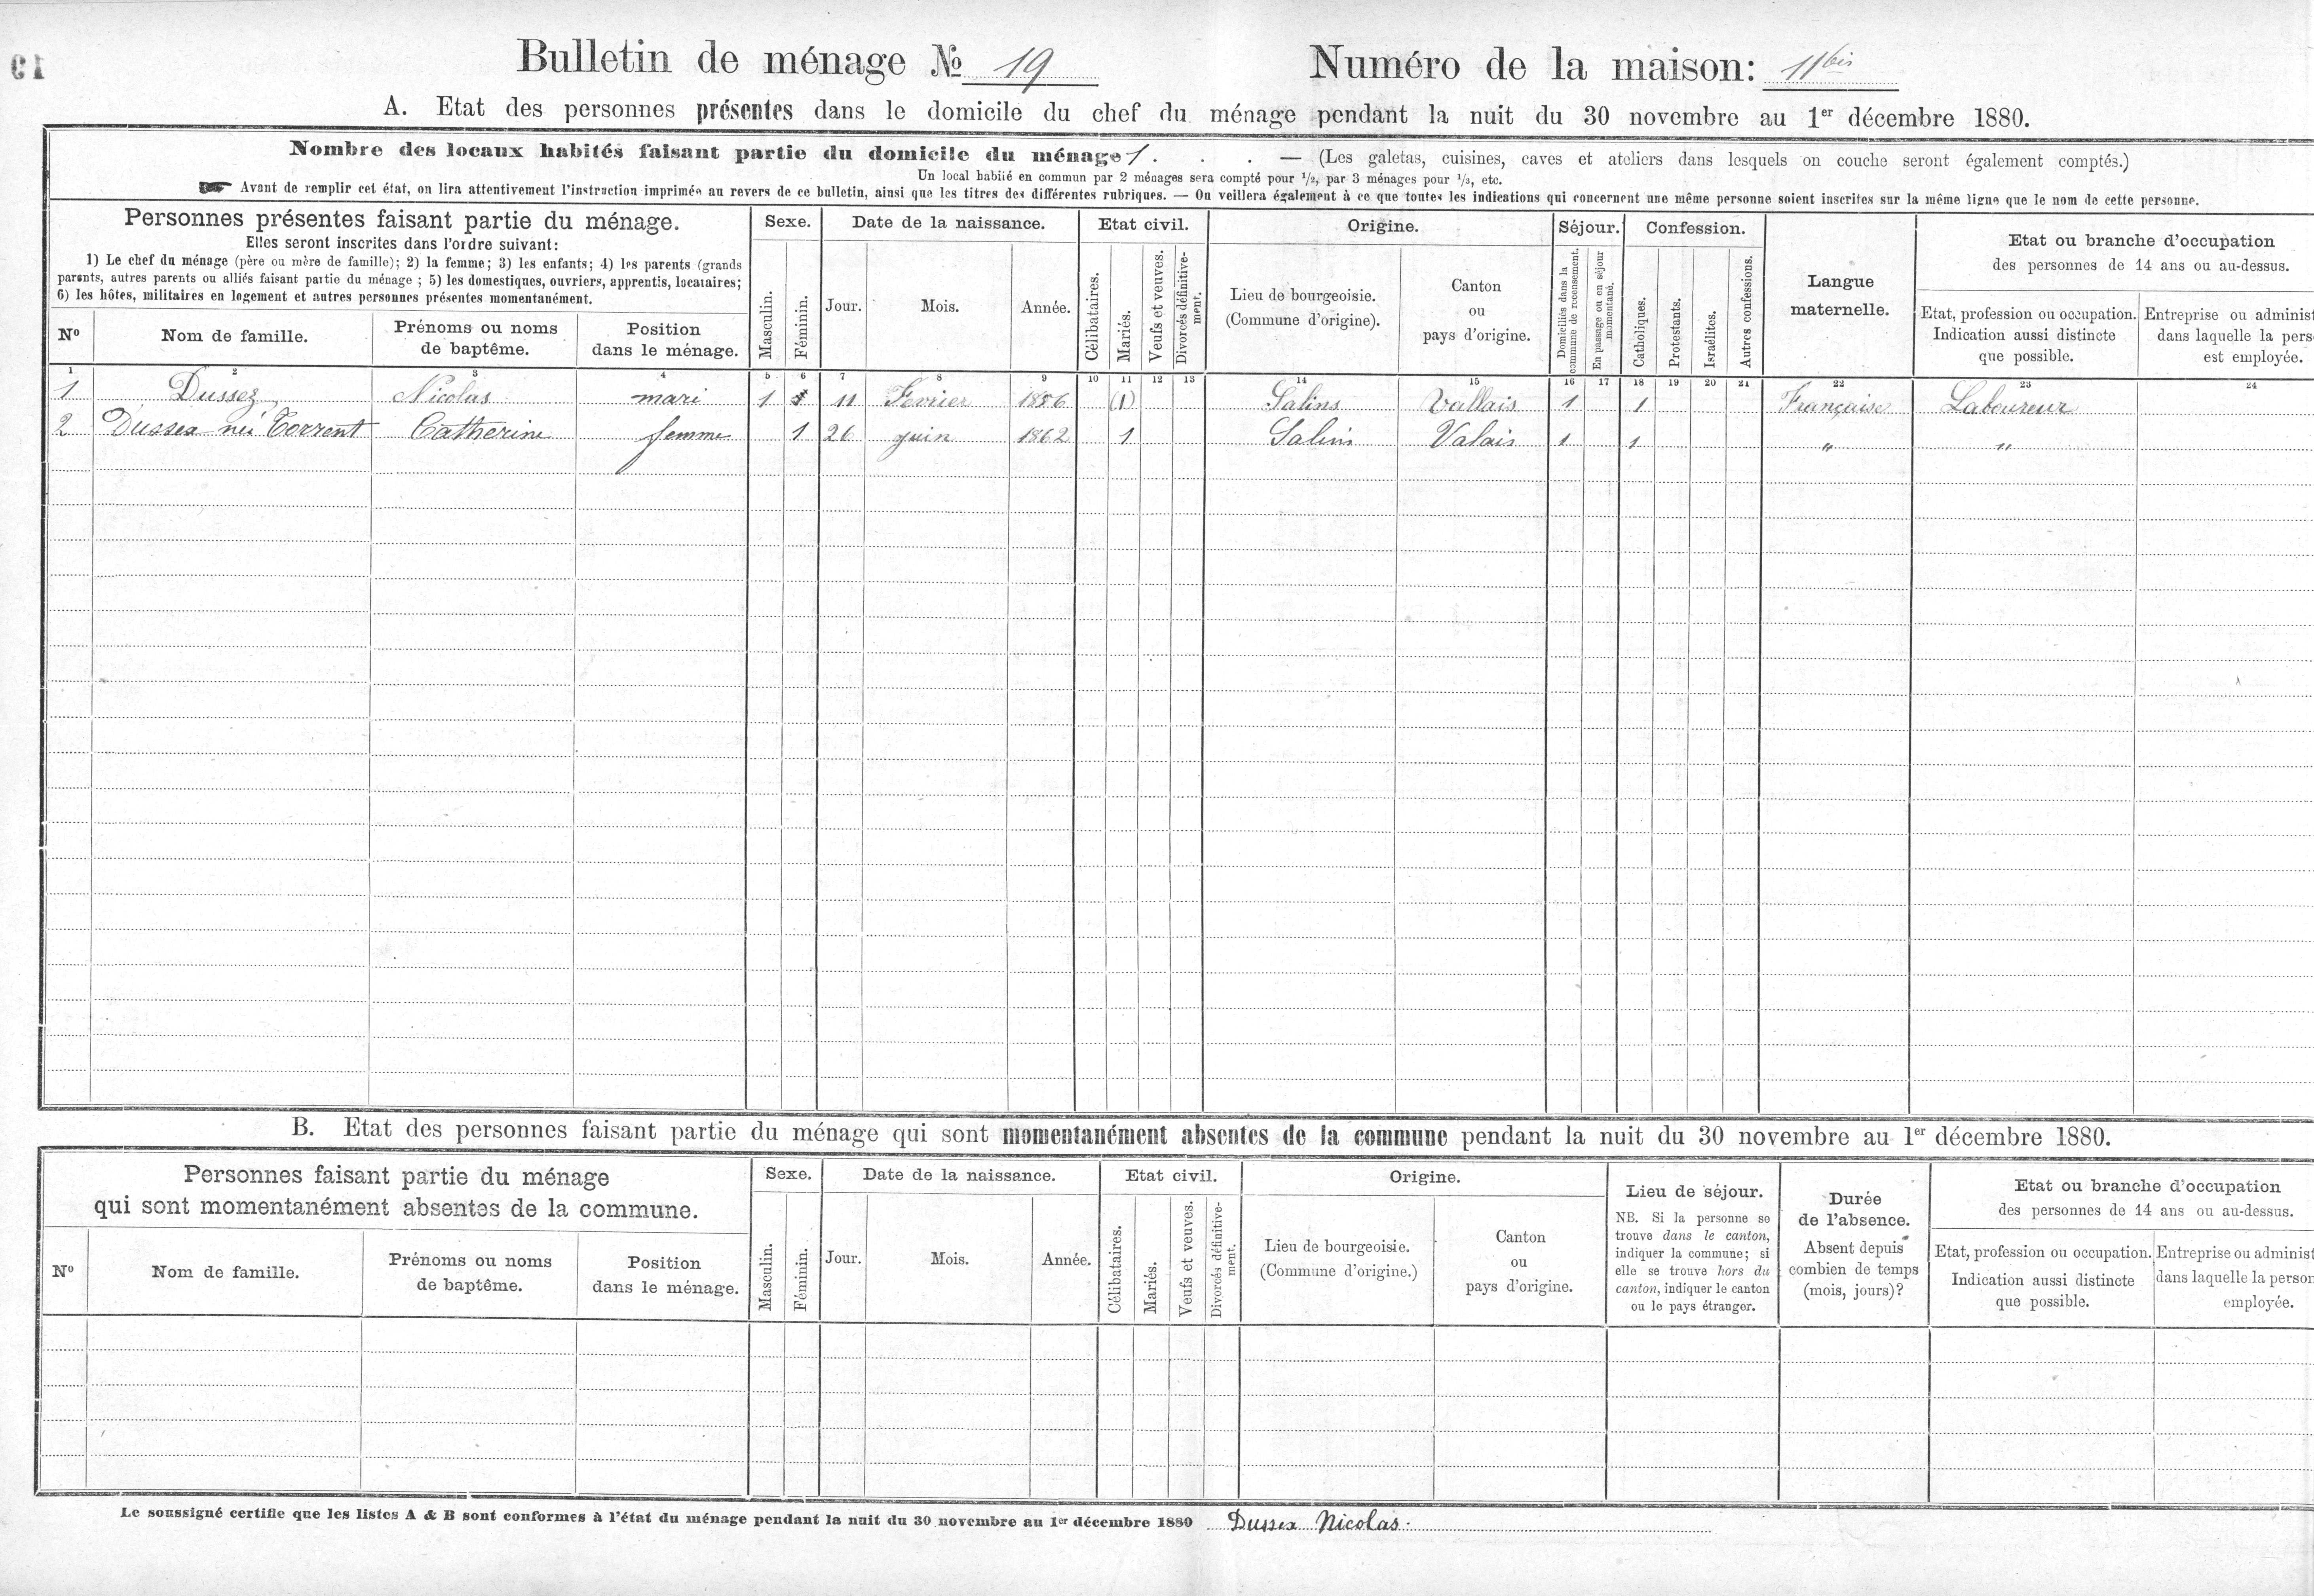 Bulletin de ménage № 19
Numéro de la maison: 11bis
A. Etat des personnes présentes dans le domicile du chef du ménage pendant la nuit du 30 novembre au 1er décembre 1880.
Nombre des locaux habités faisant partie du domicile du ménage 1. . . — (Les galetas, cuisines, caves et ateliers dans lesquels on couche seront également comptés.)
Un local habité en commun par 2 ménages sera compté pour 1/2, par 3 ménages pour 1/3, etc.
Avant de remplir cet état, on lira attentivement l'instruction imprimée au revers de ce bulletin, ainsi que les titres des différentes rubriques. — On veillera également à ce que toutes les indications qui concernent une même personne soient inscrites sur la même ligne que le nom de cette personne.
Personnes présentes faisant partie du ménage.
Elles seront inscrites dans l'ordre suivant:
1) Le chef du ménage (père ou mère de famille); 2) la femme; 3) les enfants; 4) les parents (grands
parents, autres parents ou alliés faisant partie du ménage ; 5) les domestiques, ouvriers, apprentis, locataires;
6) les hôtes, militaires en logement et autres personnes présentes momentanément.
Nº
Nom de famille.
Prénoms ou noms
de baptême.
Position
dans le ménage.
Sexe.
Masculin.
Féminin.
Date de la naissance.
Jour.
Mois.
Année.
Etat civil.
Célibataires.
Mariés.
Veufs et veuves.
Divorcés définitive-
ment.
Origine.
Lieu de bourgeoisie.
(Commune d'origine).
Canton
ou
pays d'origine.
Séjour.
Domiciliés dans la
commune de recensement.
En passage ou en séjour
momentané.
Confession.
Catholiques.
Protestants.
Israélites.
Autres confessions.
Langue
maternelle.
Etat ou branche d'occupation
des personnes de 14 ans ou au-dessus.
Etat, profession ou occupation.
Indication aussi distincte
que possible.
Entreprise ou administ
dans laquelle la pers
est employée.
1 2 3 4 5 6 7 8 9 10 11 12 13 14 15 16 17 18 19 20 21 22 23 24
1 Dussez Nicolas mari 1 11 Fevrier 1856 (1) Salins Vallais 1 1 Française Laboureur
2 Dussex née Torrent Catherine femme 1 26 juin 1862 1 Salins Valais 1 1 " "
B. Etat des personnes faisant partie du ménage qui sont momentanément absentes de la commune pendant la nuit du 30 novembre au 1er décembre 1880.
Personnes faisant partie du ménage
qui sont momentanément absentes de la commune.
Nº
Nom de famille.
Prénoms ou noms
de baptême.
Position
dans le ménage.
Sexe.
Masculin.
Féminin.
Date de la naissance.
Jour.
Mois.
Année.
Etat civil.
Célibataires.
Mariés.
Veufs et veuves.
Divorcés définitive-
ment.
Origine.
Lieu de bourgeoisie.
(Commune d'origine.)
Canton
ou
pays d'origine.
Lieu de séjour.
NB. Si la personne se
trouve dans le canton,
indiquer la commune; si
elle se trouve hors du
canton, indiquer le canton
ou le pays étranger.
Durée
de l'absence.
Absent depuis
combien de temps
(mois, jours)?
Etat ou branche d'occupation
des personnes de 14 ans ou au-dessus.
Etat, profession ou occupation.
Indication aussi distincte
que possible.
Entreprise ou administ
dans laquelle la person
employée.
Le soussigné certifie que les listes A & B sont conformes à l'état du ménage pendant la nuit du 30 novembre au 1er décembre 1880 Dussex Nicolas.